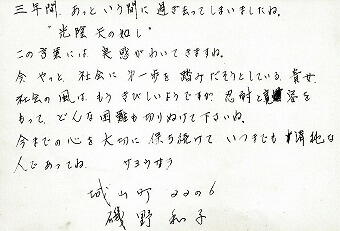 三年間、あっという間に過ぎ去ってしまいましたね。
"光陰矢の如し"
この言葉には、実感がわいてきますね。
今やっと、社会に第一歩を踏みだそうとしている貴女、
社会の風は、もうきびしいようですが、忍耐と寛容を
もって、どんな困難も切りぬけて下さいね。
今までの心を大切に保ち続けて いつまでも清純な
人であってね。 サヨウナラ
城山町2206
磯野和子